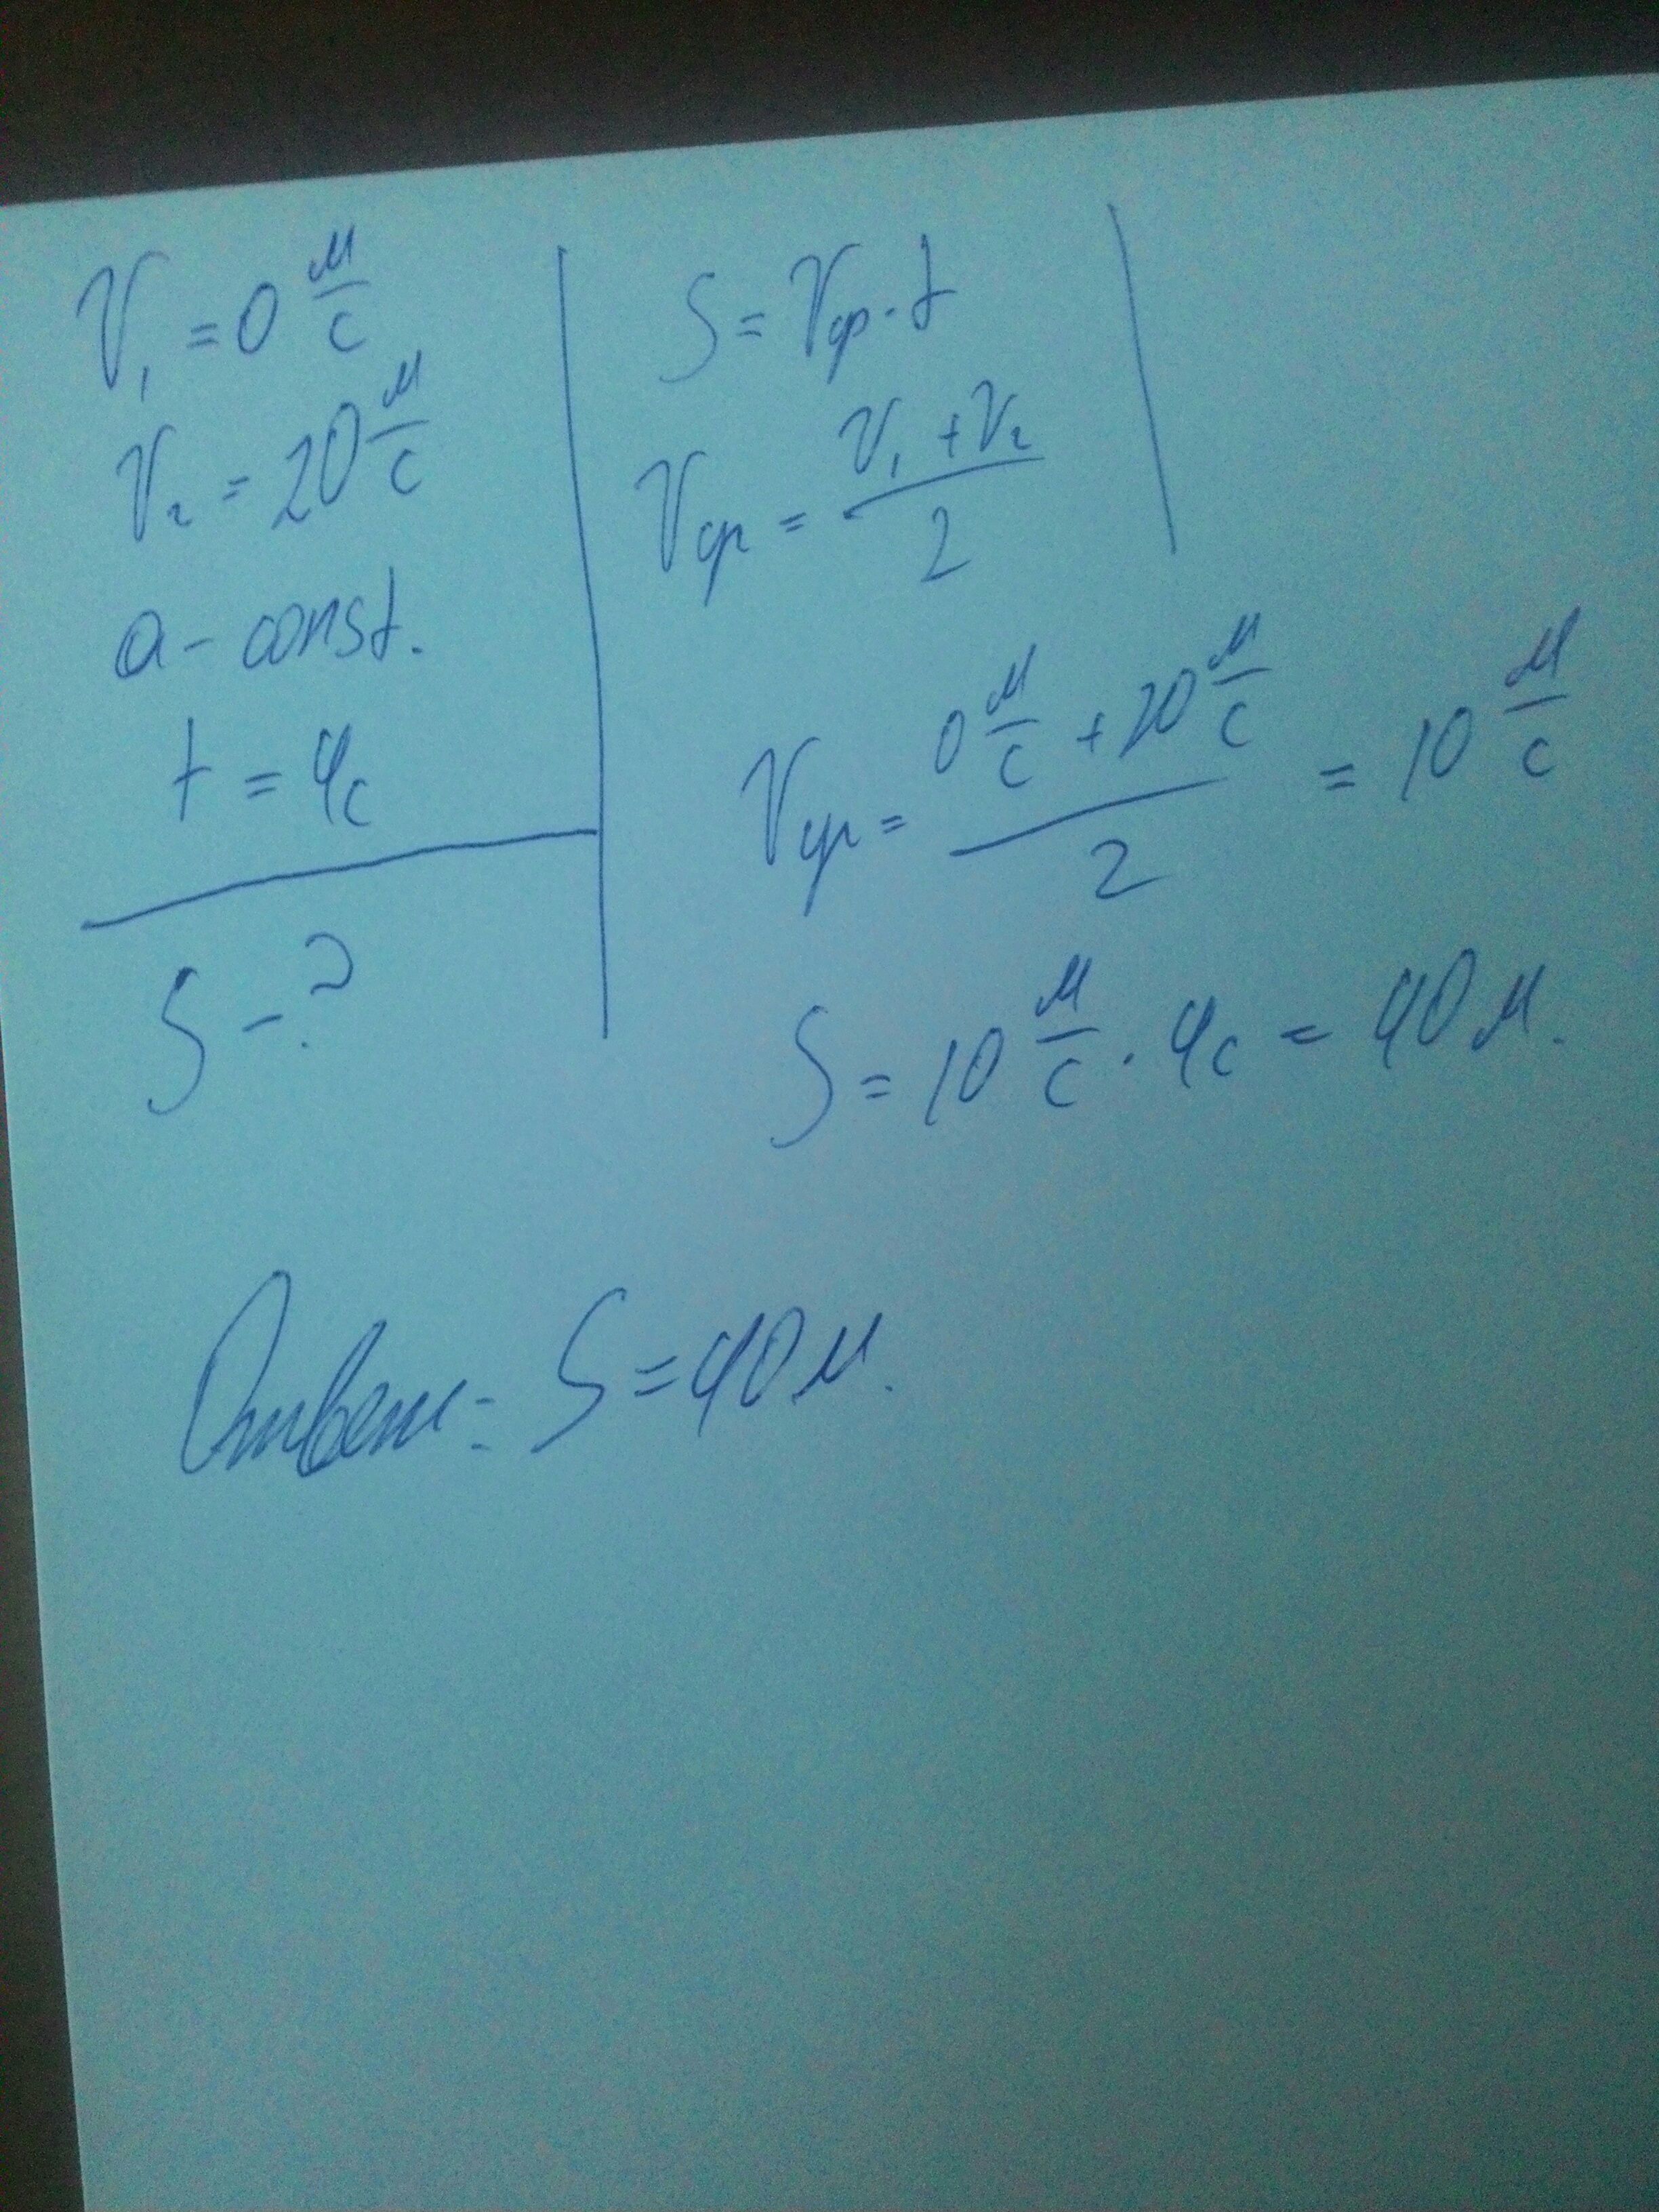 V₁ = 0 м/с
V₂ = 20 м/с
a - const.
t = 4с
S - ?
S = Vср · t
Vср = (V₁ + V₂)/2
Vср = (0 м/с + 20 м/с)/2 = 10 м/с
S = 10 м/с · 4с = 40 м.
Ответ: S = 40 м.